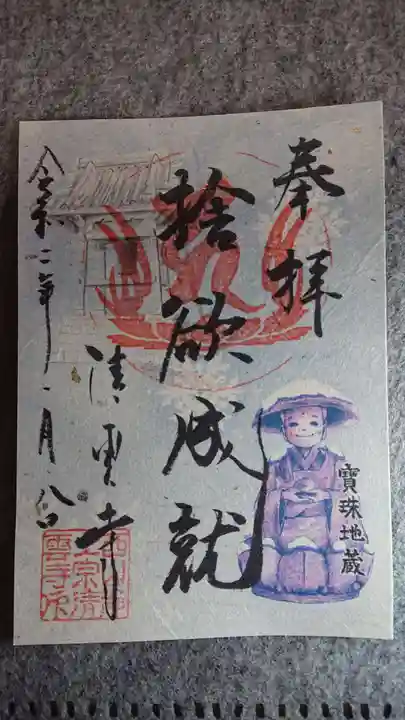 奉拝
捨欲成就
寶珠地蔵
清雲寺
令和二年一月八日